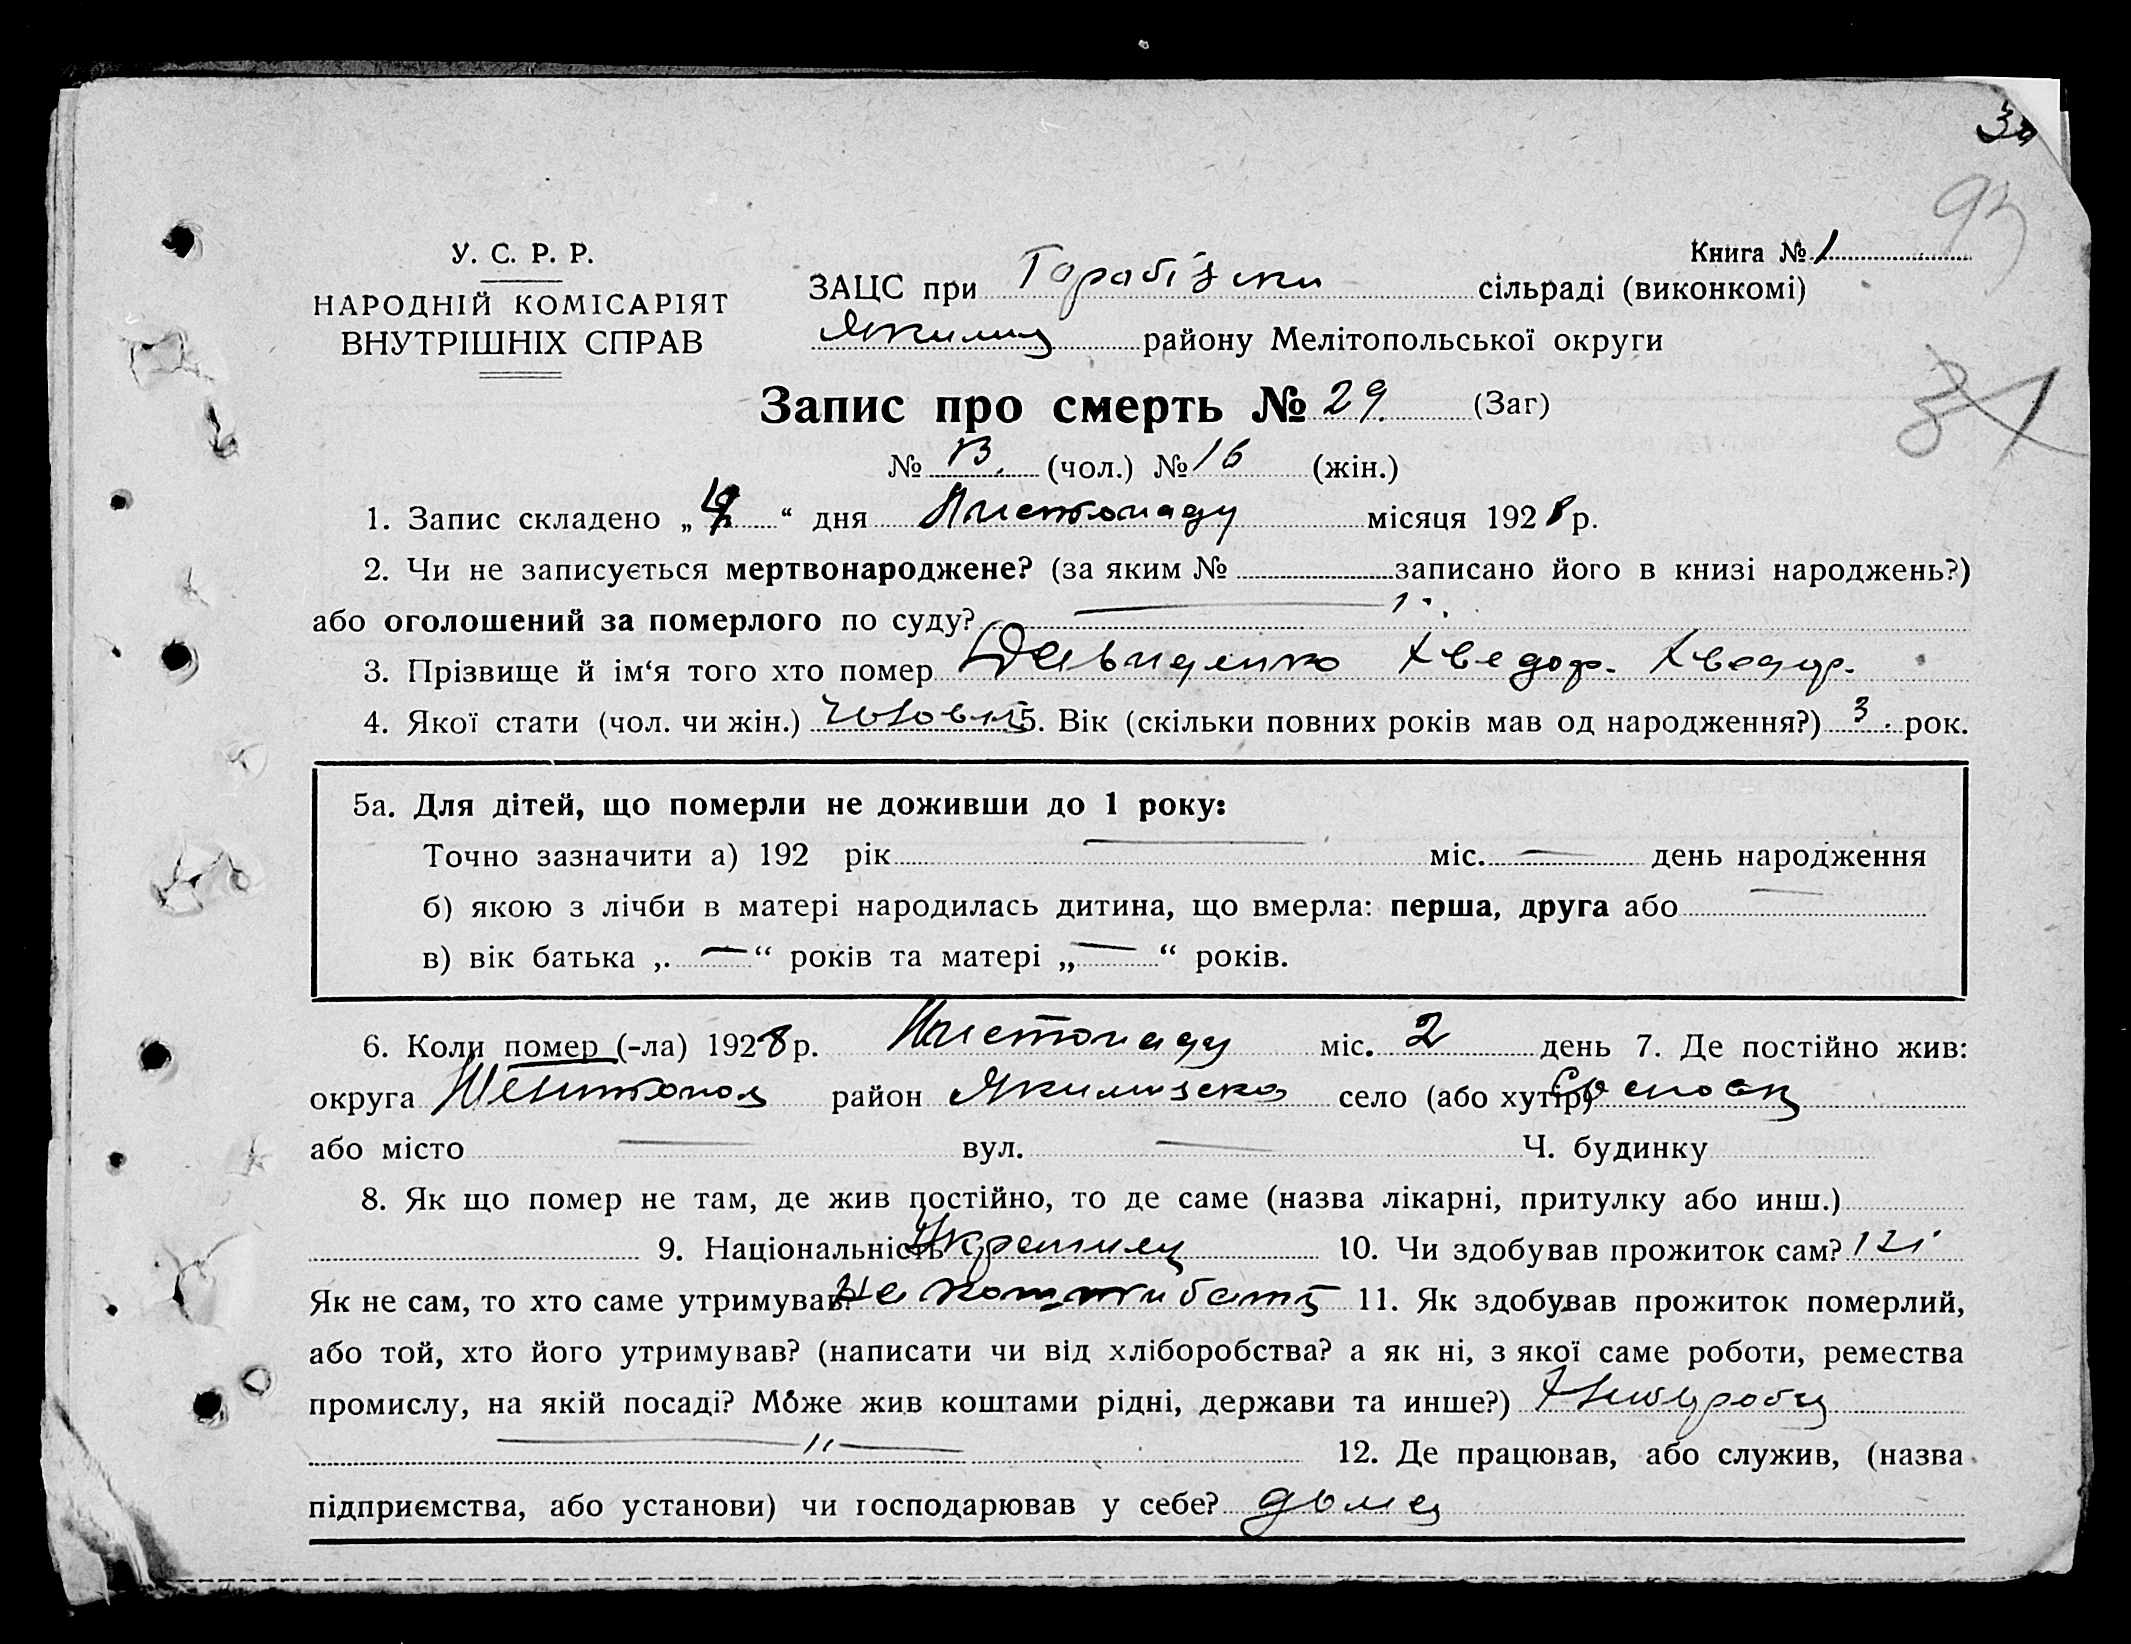 За
93
У. С. Р. Р.
НАРОДНІЙ КОМІСАРІЯТ
ВНУТРІШНІХ СПРАВ
Книга № 1
ЗАЦС при сільраді (виконкомі)
району Мелітопольської округи
Запис про смерть № 29 (Заг)
№ 13. (чол.) № 16 (жін.)
1. Запис складено „ “ дня Листопаду місяця 1928 р.
2. Чи не записується мертвонароджене? (за яким № записано його в книзі народжень?)
або оголошений за померлого по суду?
3. Прізвище й ім‘я того хто помер Давиденко Хведор. Хведор.
4. Якої стати (чол. чи жін.) 5. Вік (скільки повних років мав од народження?) 3 рок.
5а. Для дітей, що померли не доживши до 1 року:
Точно зазначити а) 192 рік — міс. — день народження
б) якою з лічби в матері народилась дитина, що вмерла: перша, друга або —
в) вік батька „ — “ років та матері „ — “ років.
6. Коли помер (-ла) 1928 р. Листопаду міс. 2 день 7. Де постійно жив:
округа Мелитопол район село (або хутір)
або місто — вул. — Ч. будинку
8. Як що помер не там, де жив постійно, то де саме (назва лікарні, притулку або инш.)
9. Національність Украинец 10. Чи здобував прожиток сам?
Як не сам, то хто саме утримував? 11. Як здобував прожиток померлий,
або той, хто його утримував? (написати чи від хліборобства? а як ні, з якої саме роботи, ремества
промислу, на якій посаді? Може жив коштами рідні, держави та инше?)
— 〃 — 12. Де працював, або служив, (назва
підприємства, або установи) чи господарював у себе? дома